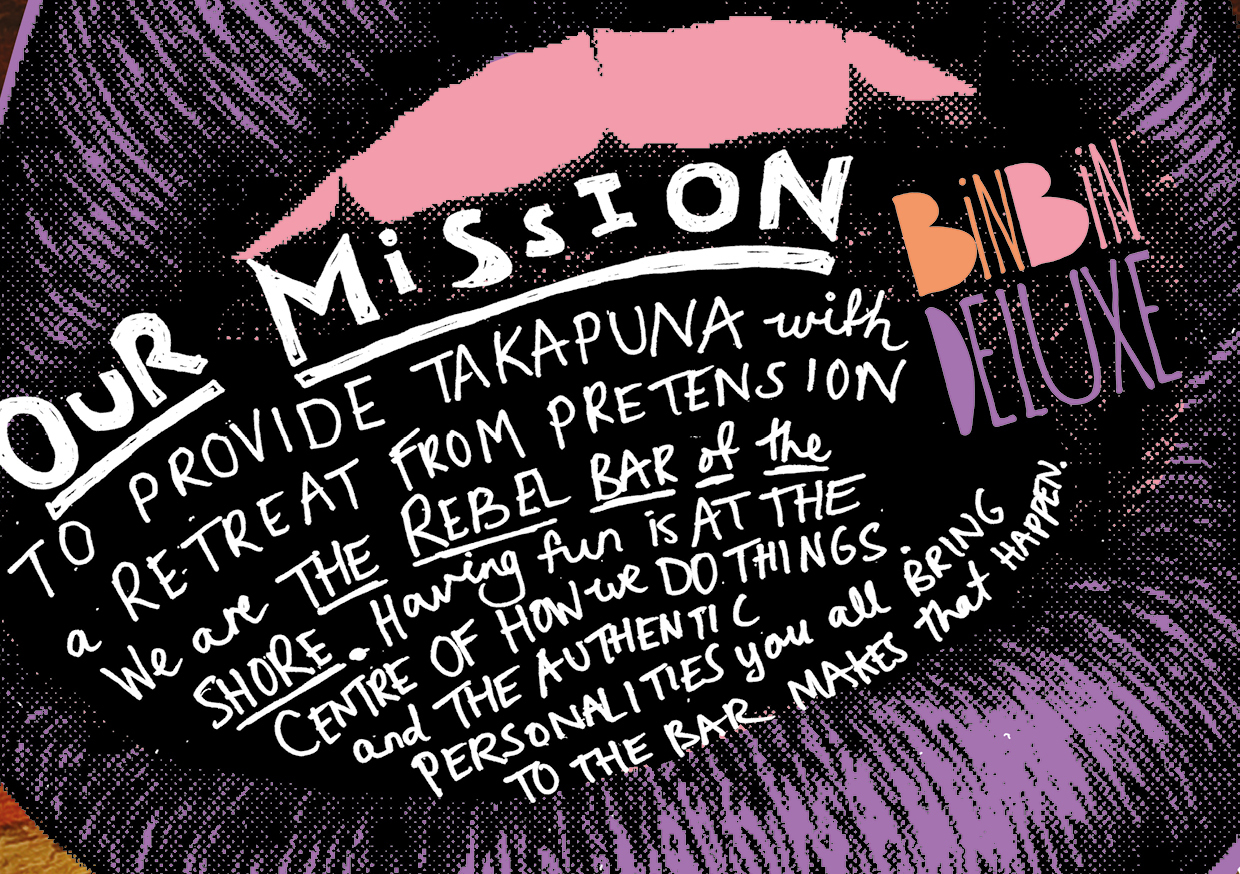 OUR MiSsION
TO PROVIDE TAKAPUNA with
a RETREAT FROM PRETENSION
We are THE REBEL BAR of the
SHORE. Having fun is AT THE
CENTRE OF HOW we DO THINGS
and THE AUTHENTIC
PERSONALITIES you all BRING
TO THE BAR MAKES that HAPPEN.
BiNBiN
DELUXE